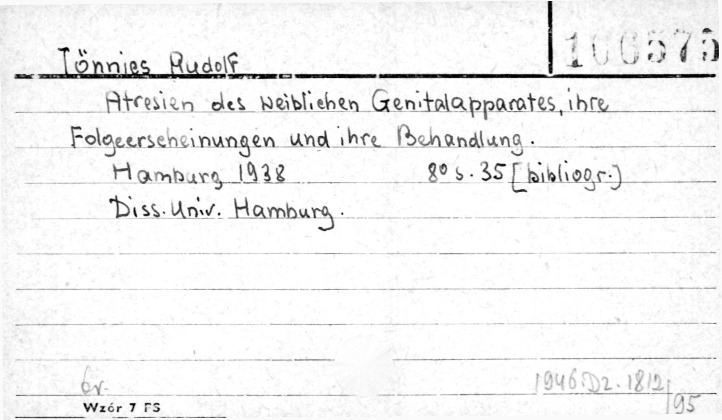 106575
Tönnies Rudolf
Atresien des weiblichen Genitalapparates, ihre
Folgeerscheinungen und ihre Behandlung.
Hamburg 1938 8° s. 35 [bibliogr.]
Diss. Univ. Hamburg.
br.
1946.Dz.1812/95
Wzór 7 FS